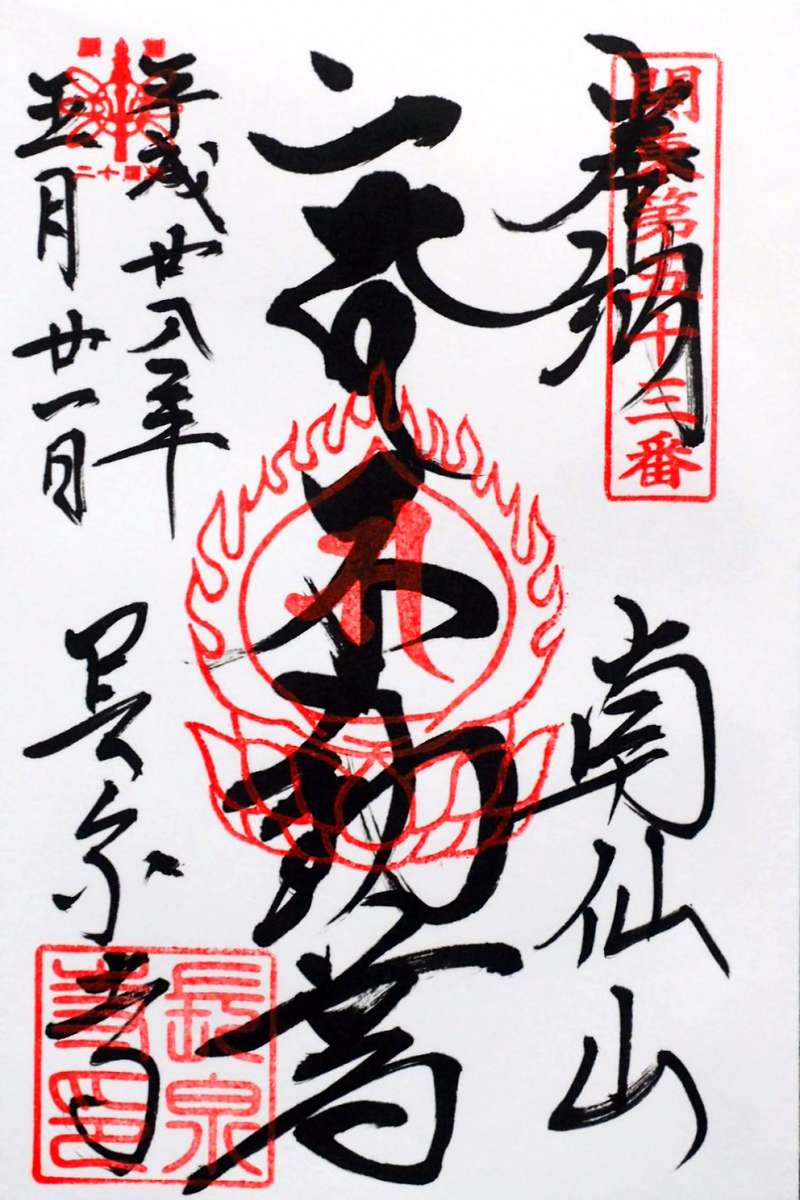 関東第五十三番
奉納
南仙山
不動尊
平成廿八年
五月廿一日
長泉寺
長泉
寺印